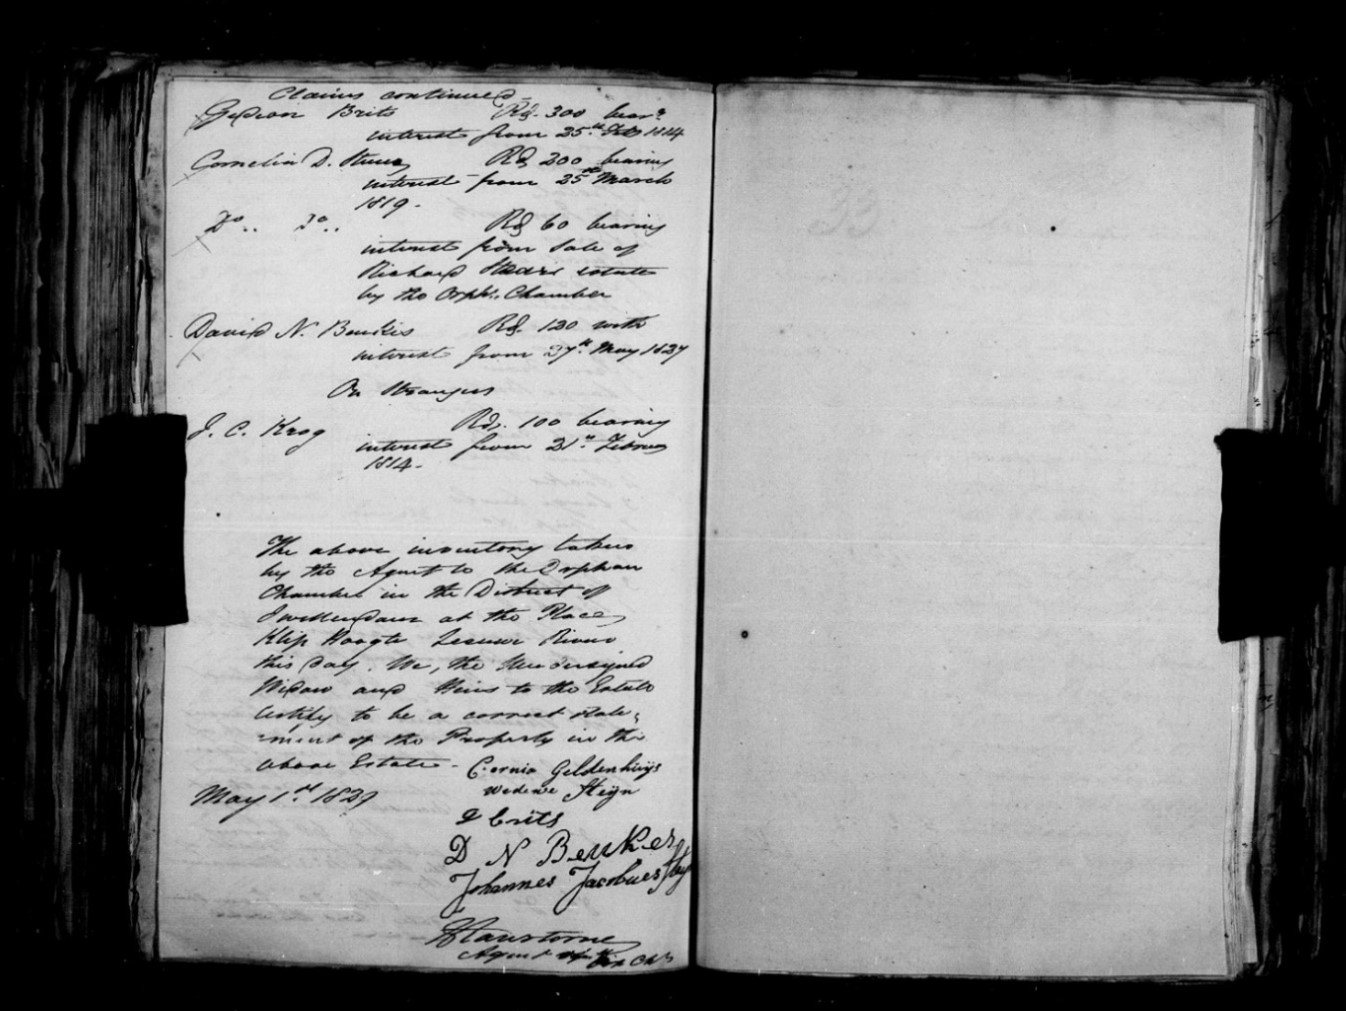 Claims continued
Gedion Brits Rds. 300 bear.g
interest from 25th Feb 1814
Cornelia D. Rds 200 bearing
interest from 25th March
1819.
Do.. Do.. Rds 60 bearing
interest from Sale of
Richard estate
by the Orphn. Chamber
David N. Beukis Rds. 120 with
interest from 27th May 1827
On Strangers
J. C. Krog Rds. 100 bearing
interest from 21st
1814.
The above inventory taken
by the Agent to the Orphan
Chamber in the District of
Swellendam at the Place
Klip Hoogte River
this day. We, the Undersigned
Widow and Heirs to the Estate
Certify to be a correct state,
=ment of the Property in the
above Estate -
May 1st 1829
Geldenhuijs
Steijn
Brits
D N Beukes
Johannes Jacobues
Agent